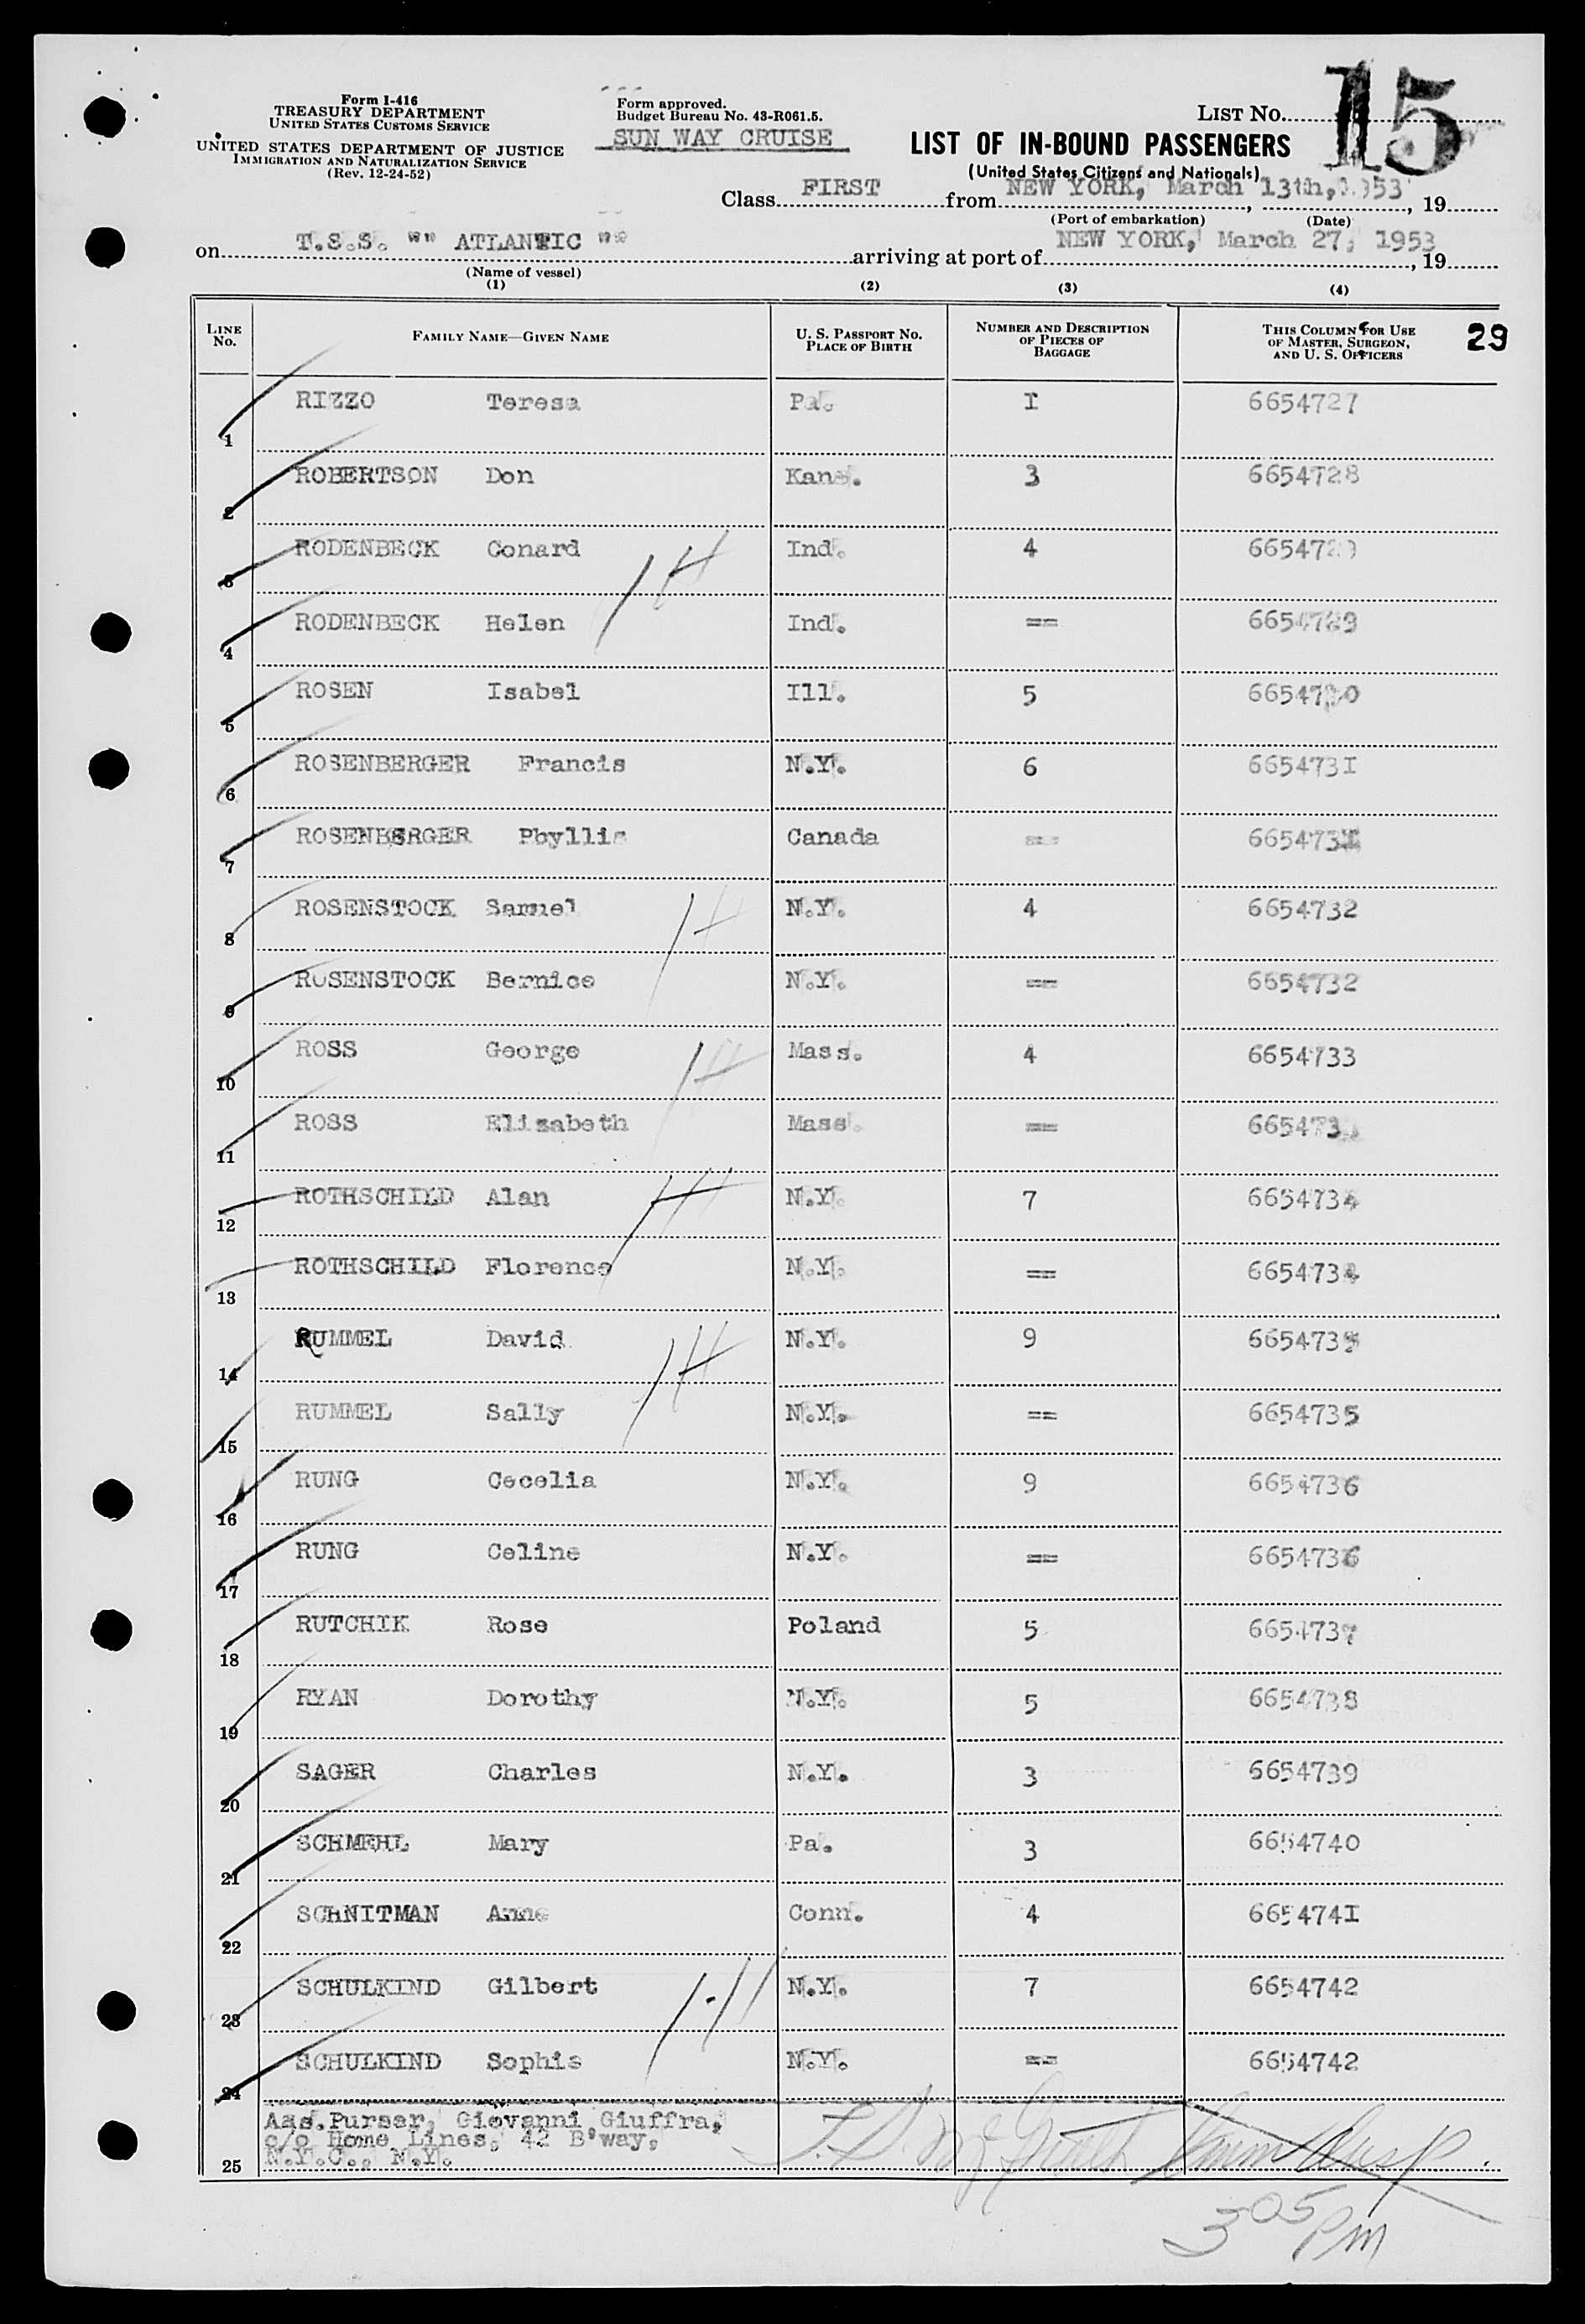 Form I-416
TREASURY DEPARTMENT
UNITED STATES CUSTOMS SERVICE
UNITED STATES DEPARTMENT OF JUSTICE
IMMIGRATION AND NATURALIZATION SERVICE
(Rev. 12-24-52)
Form approved.
Budget Bureau No. 43-R061.5.
SUN WAY CRUISE
LIST NO. 15
LIST OF IN-BOUND PASSENGERS
(United States Citizens and Nationals)
Class FIRST from NEW YORK, March 13th, 1953, 19
(Port of embarkation) (Date)
on T.S.S. "" ATLANTIC "" arriving at port of NEW YORK, March 27, 1953, 19
(Name of vessel)
(1) (2) (3) (4)
LINE NO. FAMILY NAME—GIVEN NAME U. S. PASSPORT NO. PLACE OF BIRTH NUMBER AND DESCRIPTION OF PIECES OF BAGGAGE THIS COLUMN FOR USE OF MASTER, SURGEON, AND U. S. OFFICERS 29
1 RIZZO Teresa Pa. I 6654727
2 ROBERTSON Don Kans. 3 6654728
3 RODENBECK Conard Ind. 4 6654729
4 RODENBECK Helen Ind. == 6654729
5 ROSEN Isabel Ill. 5 6654730
6 ROSENBERGER Francis N.Y. 6 665473I
7 ROSENBERGER Pbyllis Canada == 665473I
8 ROSENSTOCK Samuel N.Y. 4 6654732
9 ROSENSTOCK Bernice N.Y. == 6654732
10 ROSS George Mass. 4 6654733
11 ROSS Elizabeth Mass. == 6654733
12 ROTHSCHILD Alan N.Y. 7 6654734
13 ROTHSCHILD Florence N.Y. == 6654734
14 RUMMEL David N.Y. 9 6654735
15 RUMMEL Sally N.Y. == 6654735
16 RUNG Cecelia N.Y. 9 6654736
17 RUNG Celine N.Y. == 6654736
18 RUTCHIK Rose Poland 5 6654737
19 RYAN Dorothy N.Y. 5 6654738
20 SAGER Charles N.Y. 3 6654739
21 SCHMEHL Mary Pa. 3 6654740
22 SCHNITMAN Anne Conn. 4 665474I
23 SCHULKIND Gilbert N.Y. 7 6654742
24 SCHULKIND Sophie N.Y. == 6654742
Ass.Purser, Giovanni Giuffra,
c/o Home Lines, 42 B'way,
25 N.Y.C., N.Y.
3 05 pm